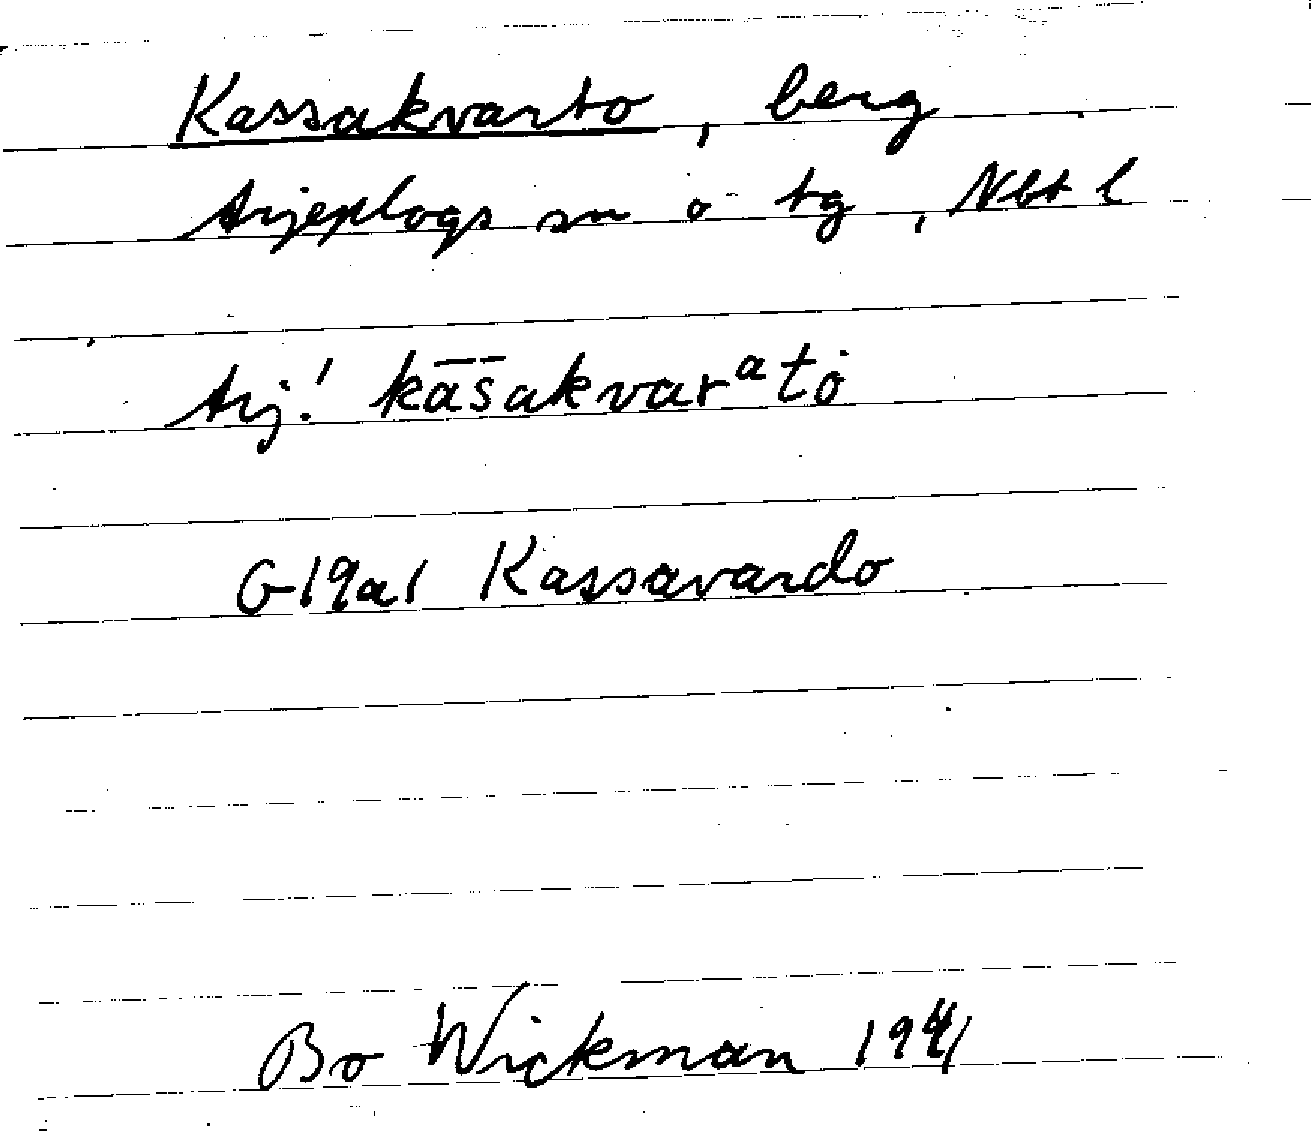 Kassakvarto, berg
Arjeplogs sn o tg, Nbt l
Arj.! kās̄akvarᵃtȯ
G19a1 Kassavardo
Bo Wickman 1941